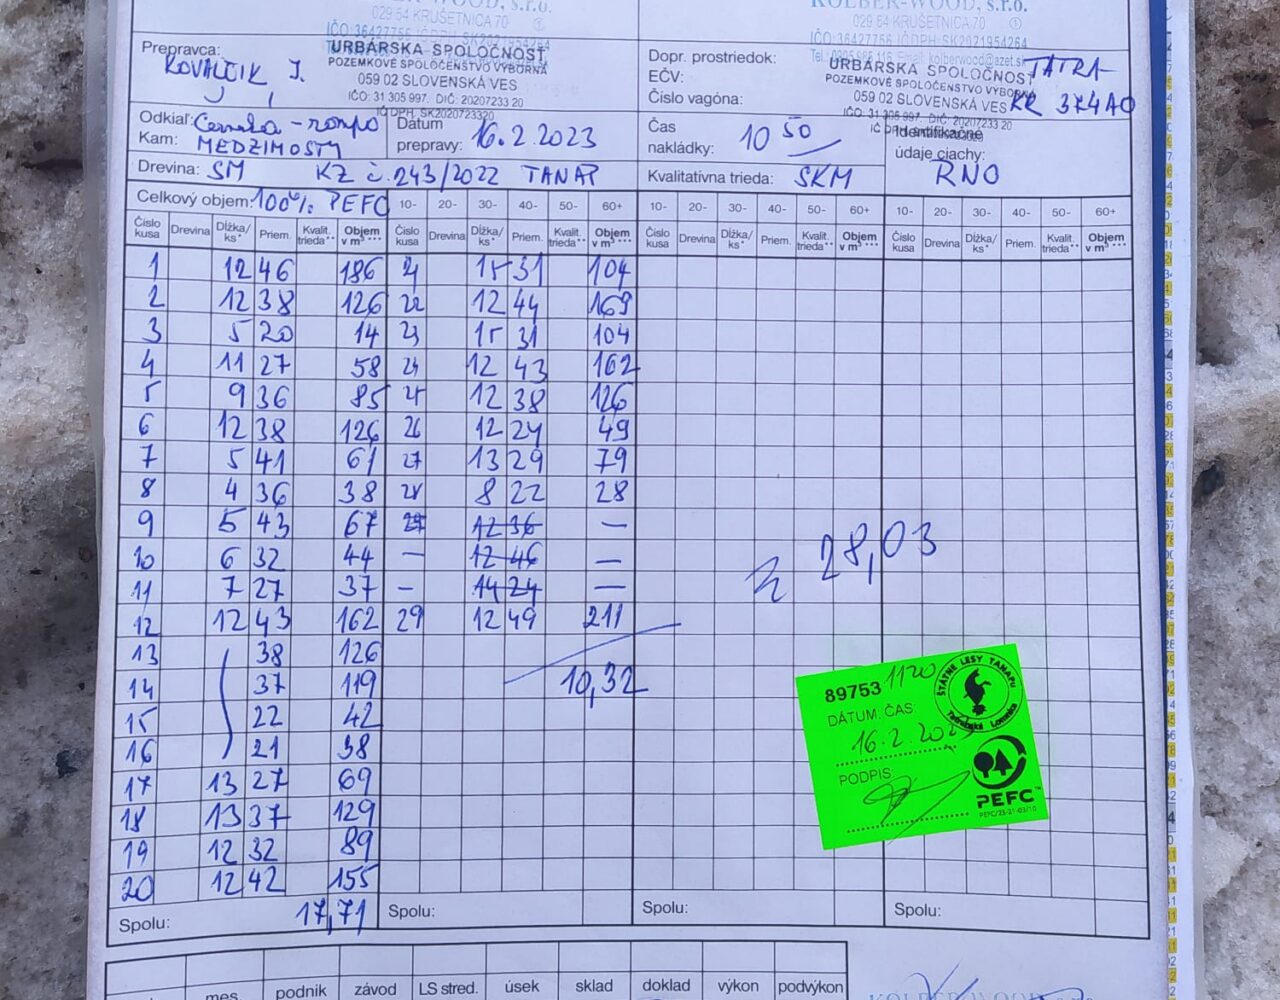 KOLBER-WOOD, s.r.o.
029 54 KRUŠETNICA 70
IČO: 36427756 IČ DPH: SK2021954264
Prepravca: KOVALČIK J.
URBÁRSKA SPOLOČNOSŤ
POZEMKOVÉ SPOLOČENSTVO VÝBORNÁ
059 02 SLOVENSKÁ VES
IČO: 31 305 997. DIČ: 20207233 20
IČ DPH: SK2020723320
KOLBER-WOOD, s.r.o.
029 54 KRUŠETNICA 70
IČO: 36427756 IČ DPH: SK2021954264
Dopr. prostriedok: TATRA
EČV: KK 374AO
Číslo vagóna:
URBÁRSKA SPOLOČNOSŤ
POZEMKOVÉ SPOLOČENSTVO VÝBORNÁ
059 02 SLOVENSKÁ VES
IČO: 31 305 997. DIČ: 20207233 20
Odkiaľ:
Kam: MEDZIMOSTY
Dátum prepravy: 16.2.2023
Čas nakládky: 10 50
Identifikačné údaje ciachy: RNO
Drevina: SM KZ č.243/2022 TANAP
Kvalitatívna trieda: SKM
Celkový objem: 100% PEFC 10- 20- 30- 40- 50- 60+ 10- 20- 30- 40- 50- 60+ 10- 20- 30- 40- 50- 60+
Číslo kusa Drevina Dĺžka/ks* Priem. Kvalit. trieda** Objem v m³*** Číslo kusa Drevina Dĺžka/ks* Priem. Kvalit. trieda** Objem v m³*** Číslo kusa Drevina Dĺžka/ks* Priem. Kvalit. trieda** Objem v m³*** Číslo kusa Drevina Dĺžka/ks* Priem. Kvalit. trieda** Objem v m³***
1 12 46 186 21 15 31 104
2 12 38 126 22 12 44 169
3 5 20 14 23 15 31 104
4 11 27 58 24 12 43 162
5 9 36 85 25 12 38 126
6 12 38 126 26 12 24 49
7 5 41 61 27 13 29 79
8 4 36 38 28 8 22 28
9 5 43 67 29 12 36 —
10 6 32 44 — 12 46 —
11 7 27 37 — 14 24 —
12 12 43 162 29 12 49 211
13 38 126
14 37 119 10,32
15 22 42
16 21 38
17 13 27 69
18 13 37 129
19 12 32 89
20 12 42 155
Spolu: 17,71 Spolu: Spolu: Spolu:
28,03
89753 1120
ŠTÁTNE LESY TANAPU
Tatranská Lomnica
DÁTUM: ČAS:
16.2.2023
PODPIS:
PEFC™
PEFC/23-21-03/10
mes. podnik závod LS stred. úsek sklad doklad výkon podvýkon
KOLBER-WOOD, s.r.o.